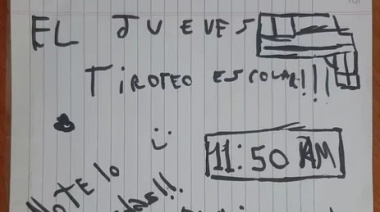 EL JUEVES
TIROTEO ESCOLAR!!!
11:50 AM
NOTE lo